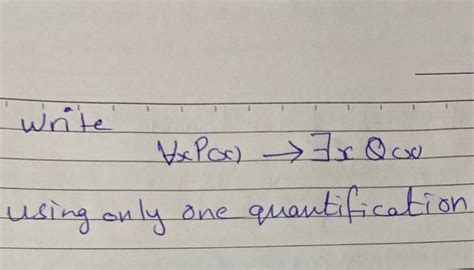 write
∀xP(x) → ∃x Q(x)
using only one quantification